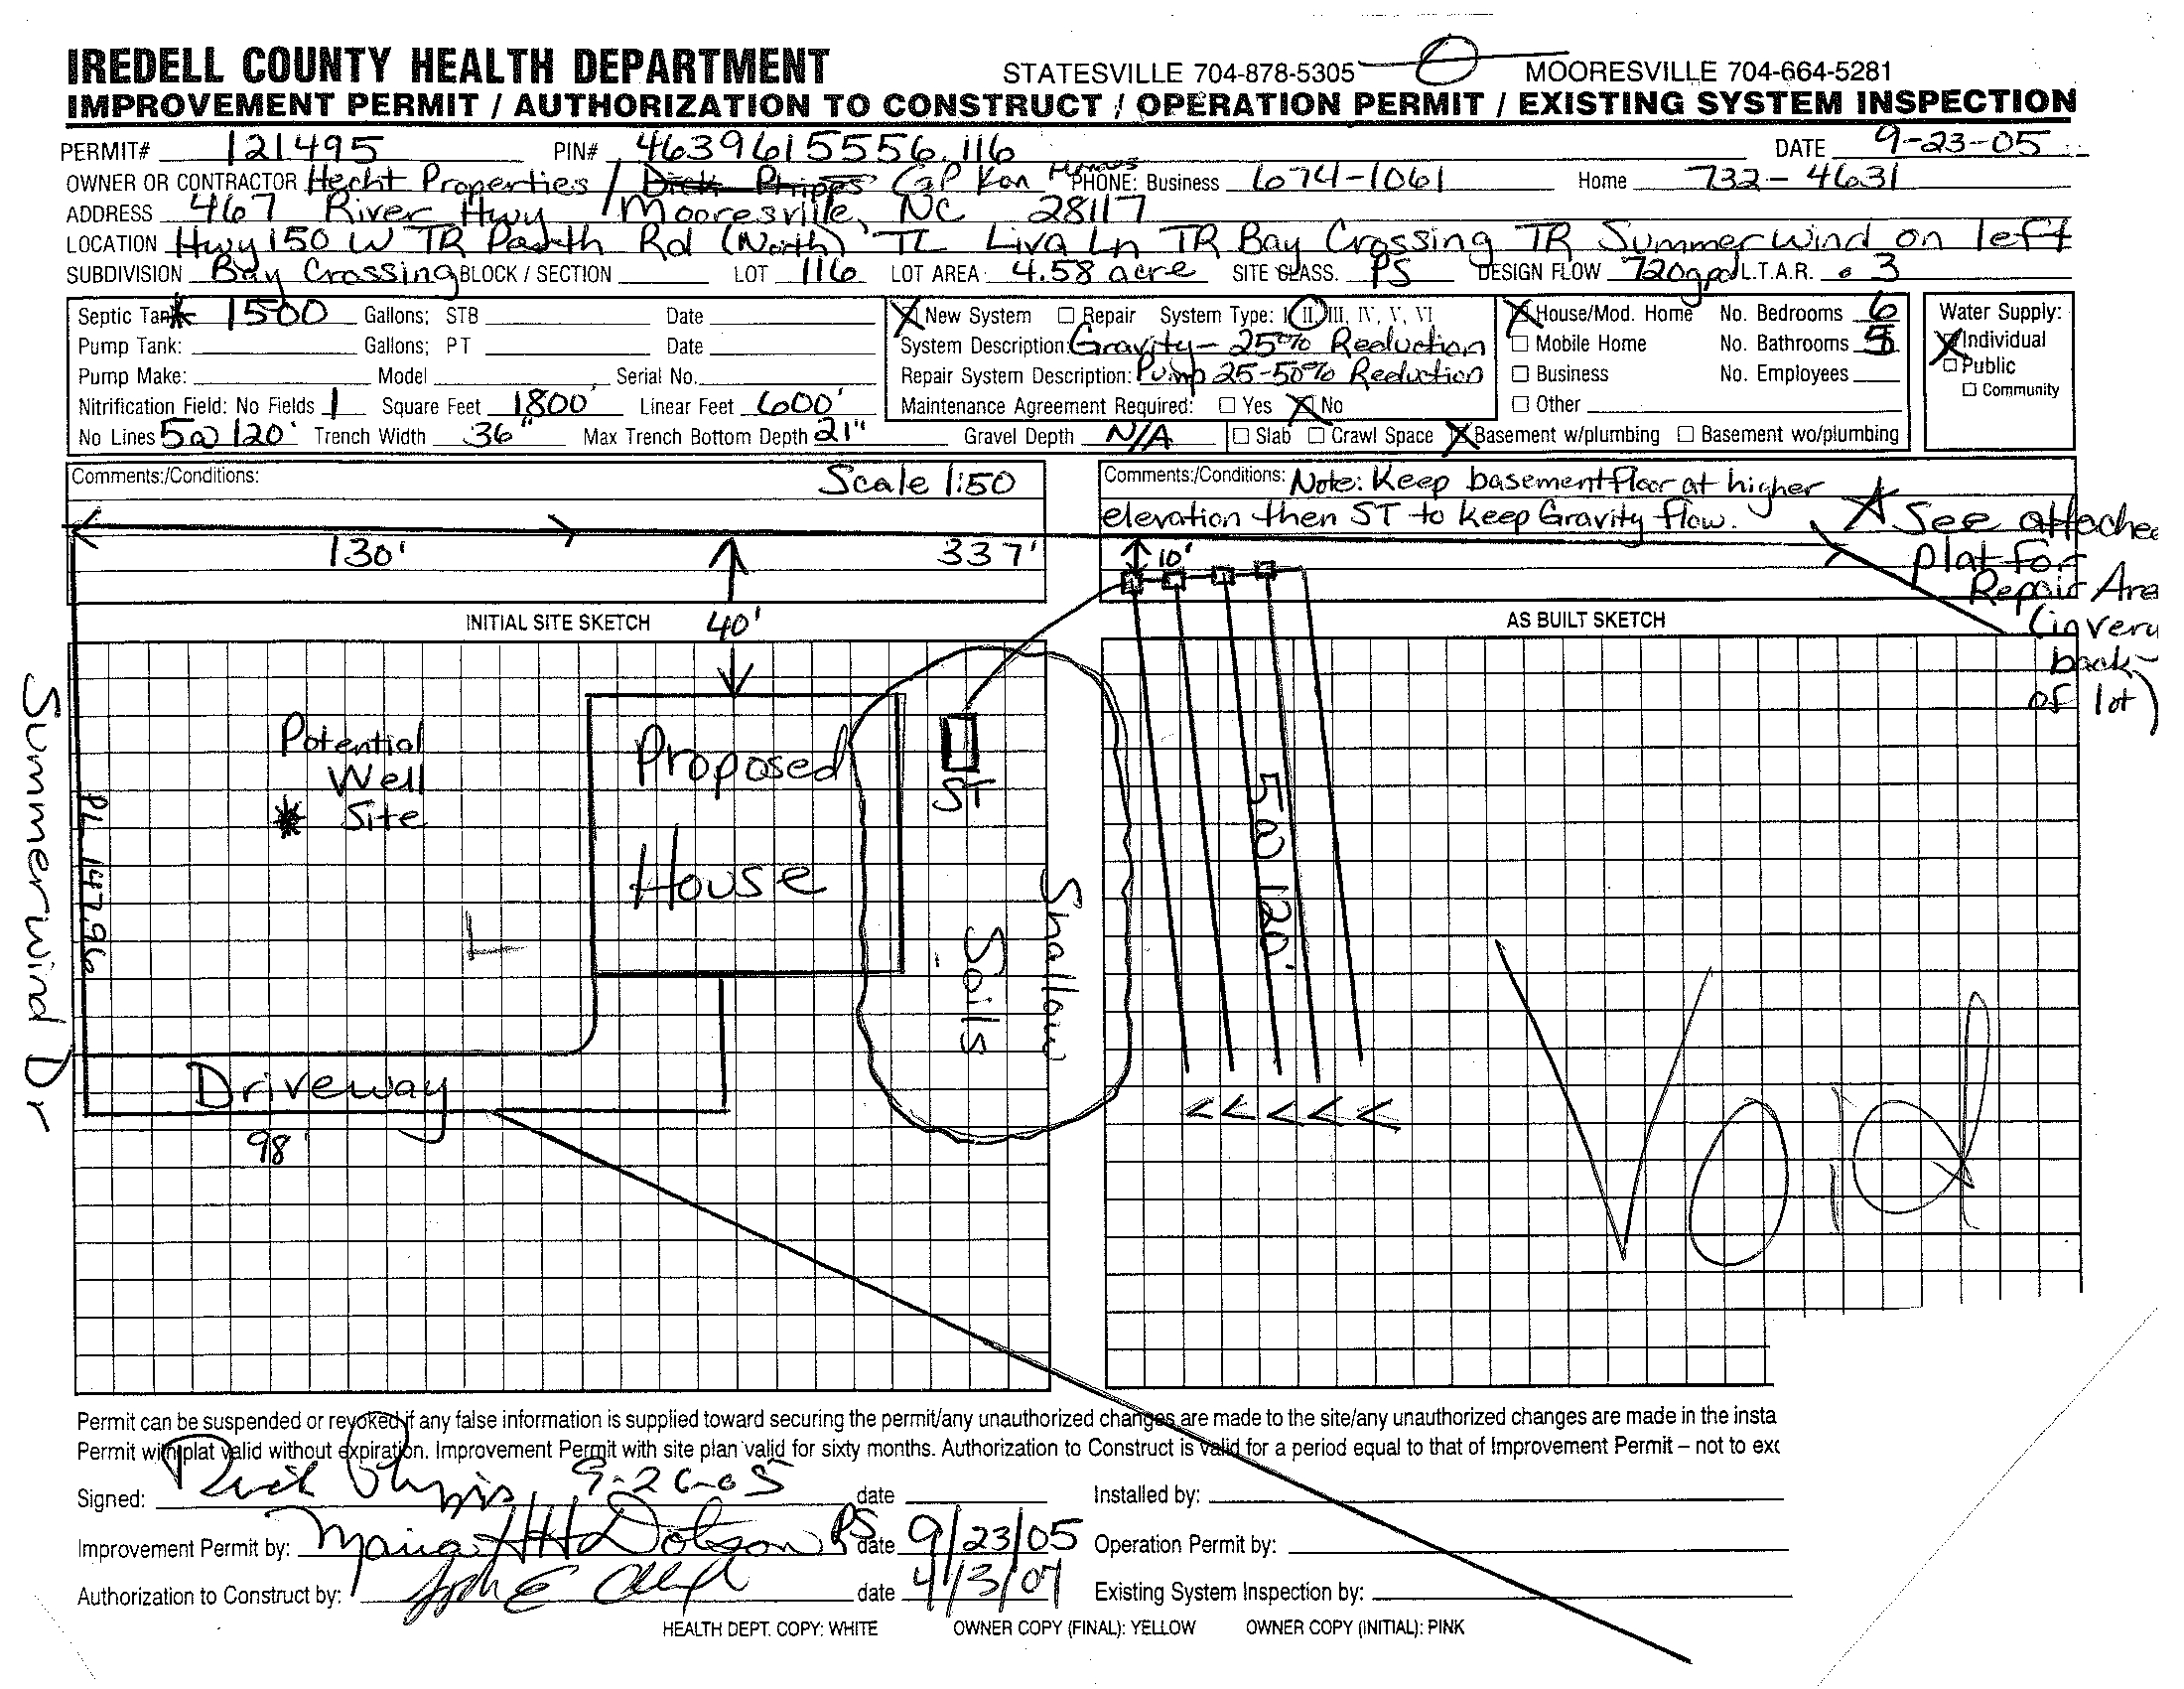 IREDELL COUNTY HEALTH DEPARTMENT
STATESVILLE 704-878-5305 MOORESVILLE 704-664-5281
IMPROVEMENT PERMIT / AUTHORIZATION TO CONSTRUCT / OPERATION PERMIT / EXISTING SYSTEM INSPECTION
PERMIT# 121495 PIN# 4639615556.116 DATE 9-23-05
OWNER OR CONTRACTOR Hecht Properties / Dick Phipps Cap Kon Homes PHONE: Business 674-1061 Home 732-4631
ADDRESS 467 River Hwy Mooresville, NC 28117
LOCATION Hwy 150 W TR Rd (North) TL Liva Ln TR Bay Crossing TR Summerwind on left
SUBDIVISION Bay Crossing BLOCK / SECTION LOT 116 LOT AREA 4.58 acre SITE CLASS. PS DESIGN FLOW 720gpd L.T.A.R. .3
Septic Tank 1500 Gallons; STB Date
Pump Tank: Gallons; PT Date
Pump Make: Model Serial No.
Nitrification Field: No Fields 1 Square Feet 1800' Linear Feet 600'
No Lines 5@120' Trench Width 36" Max Trench Bottom Depth 21" Gravel Depth N/A
New System Repair System Type: I II, III, IV, V, VI
System Description: Gravity-25% Reduction
Repair System Description: Pump 25-50% Reduction
Maintenance Agreement Required: Yes No
House/Mod. Home No. Bedrooms 6
Mobile Home No. Bathrooms 5
Business No. Employees
Other
Slab Crawl Space Basement w/plumbing Basement wo/plumbing
Water Supply:
Individual
Public
Community
Comments:/Conditions: Scale 1:50
Comments:/Conditions: Note: Keep basement floor at higher
elevation then ST to keep Gravity flow.
See attached
plat for
Repair Area
(in very
back
of lot)
130' 337' 10'
40'
INITIAL SITE SKETCH
AS BUILT SKETCH
Summerwind Dr
PL 147.96
Potential
Well
Site
Proposed
House
ST
Shallow
Soils
5@120'
Driveway
98'
Void
Permit can be suspended or revoked if any false information is supplied toward securing the permit/any unauthorized changes are made to the site/any unauthorized changes are made in the insta
Permit with plat valid without expiration. Improvement Permit with site plan valid for sixty months. Authorization to Construct is valid for a period equal to that of Improvement Permit – not to exc
Signed: Dick Phipps 9-26-05 date Installed by:
Improvement Permit by: Maria H Dotson RS date 9/23/05 Operation Permit by:
Authorization to Construct by: date 4/13/07 Existing System Inspection by:
HEALTH DEPT. COPY: WHITE OWNER COPY (FINAL): YELLOW OWNER COPY (INITIAL): PINK